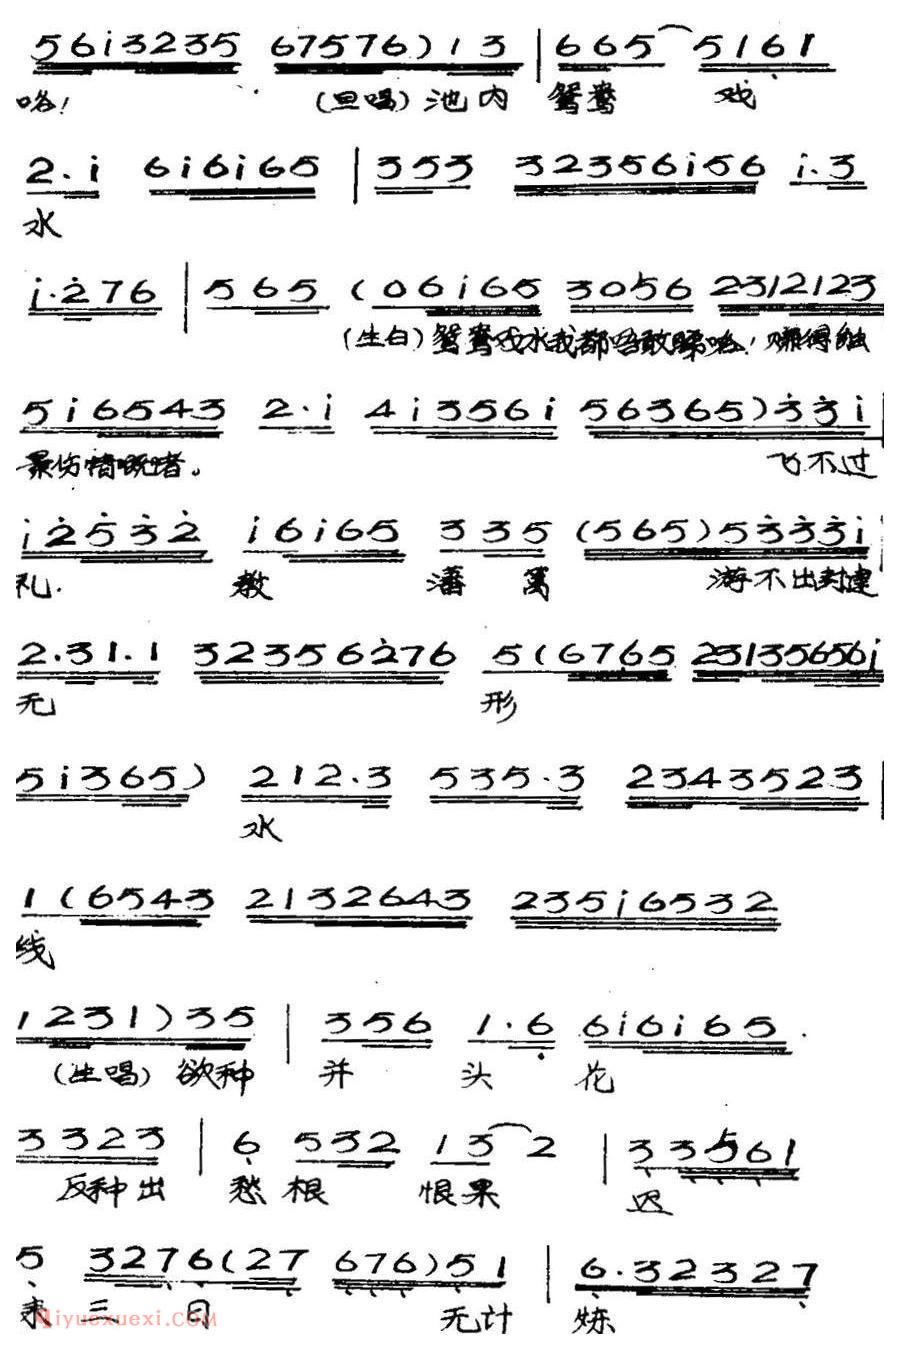 56i3235 67576) 13 | 665 5161
咯! (旦唱) 池内 鸳鸯 戏
2.i 6i6i65 | 353 32356i56 i.3
水
i.276 | 565 (06i65 3056 2312123
(生白) 鸳鸯戏水我都唔敢睇咯! 嘅得能
5i6543 2.i 4i356i 56365) 33i
最伤情嘅啫。 飞不过
i2532 i6i65 335 (565) 5333i
礼. 教 藩 篱 游不出封建
2.31.1 32356276 5(6765 23135656i
无 形
5i365) 212.3 535.3 2343523
水
1(6543 2132643 235i6532
线
1231) 35 | 356 1.6 6i6i65
(生唱) 欲种 并 头 花
3323 | 6 532 13 2 | 33561
反种出 愁根 恨果 迟
5 3276(27 676) 51 | 6.32327
来 三 日 无计 炼
jiyuexuexi.com